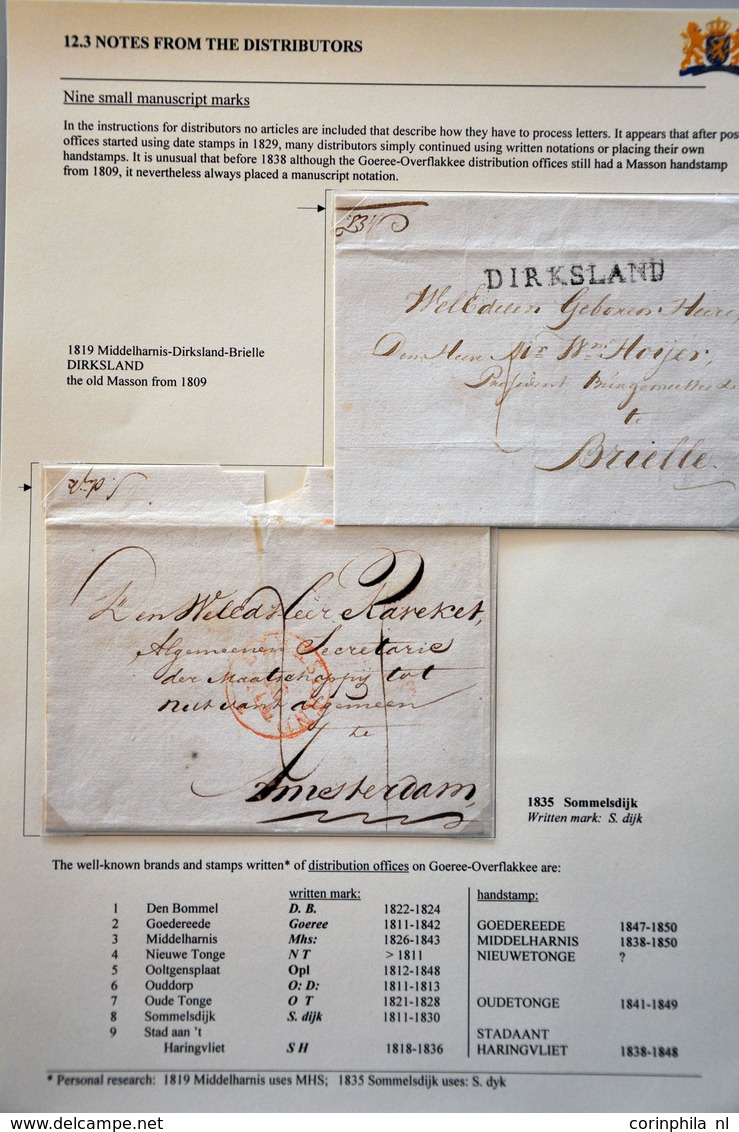 12.3 NOTES FROM THE DISTRIBUTORS
Nine small manuscript marks
In the instructions for distributors no articles are included that describe how they have to process letters. It appears that after pos
offices started using date stamps in 1829, many distributors simply continued using written notations or placing their own
handstamps. It is unusual that before 1838 although the Goeree-Overflakkee distribution offices still had a Masson handstamp
from 1809, it nevertheless always placed a manuscript notation.
DIRKSLAND
WelEdelen Geboren Heere,
Den Heer Mr. Wm. Hoijer,
President Burgemeester de
te
Brielle.
1819 Middelharnis-Dirksland-Brielle
DIRKSLAND
the old Masson from 1809
S. dijk
Den WelEd Heer Kareket,
Algemeenen Secretaris
der Maatschappij tot
Nut van't algemeen
te
Amsterdam,
1835 Sommelsdijk
Written mark: S. dijk
The well-known brands and stamps written* of distribution offices on Goeree-Overflakkee are:
written mark: handstamp:
1 Den Bommel D. B. 1822-1824
2 Goedereede Goeree 1811-1842 GOEDEREEDE 1847-1850
3 Middelharnis Mhs: 1826-1843 MIDDELHARNIS 1838-1850
4 Nieuwe Tonge N T > 1811 NIEUWETONGE ?
5 Ooltgensplaat Opl 1812-1848
6 Ouddorp O: D: 1811-1813
7 Oude Tonge O T 1821-1828 OUDETONGE 1841-1849
8 Sommelsdijk S. dijk 1811-1830
9 Stad aan 't STADAANT
Haringvliet S H 1818-1836 HARINGVLIET 1838-1848
* Personal research: 1819 Middelharnis uses MHS; 1835 Sommelsdijk uses: S. dyk
corinphila nl